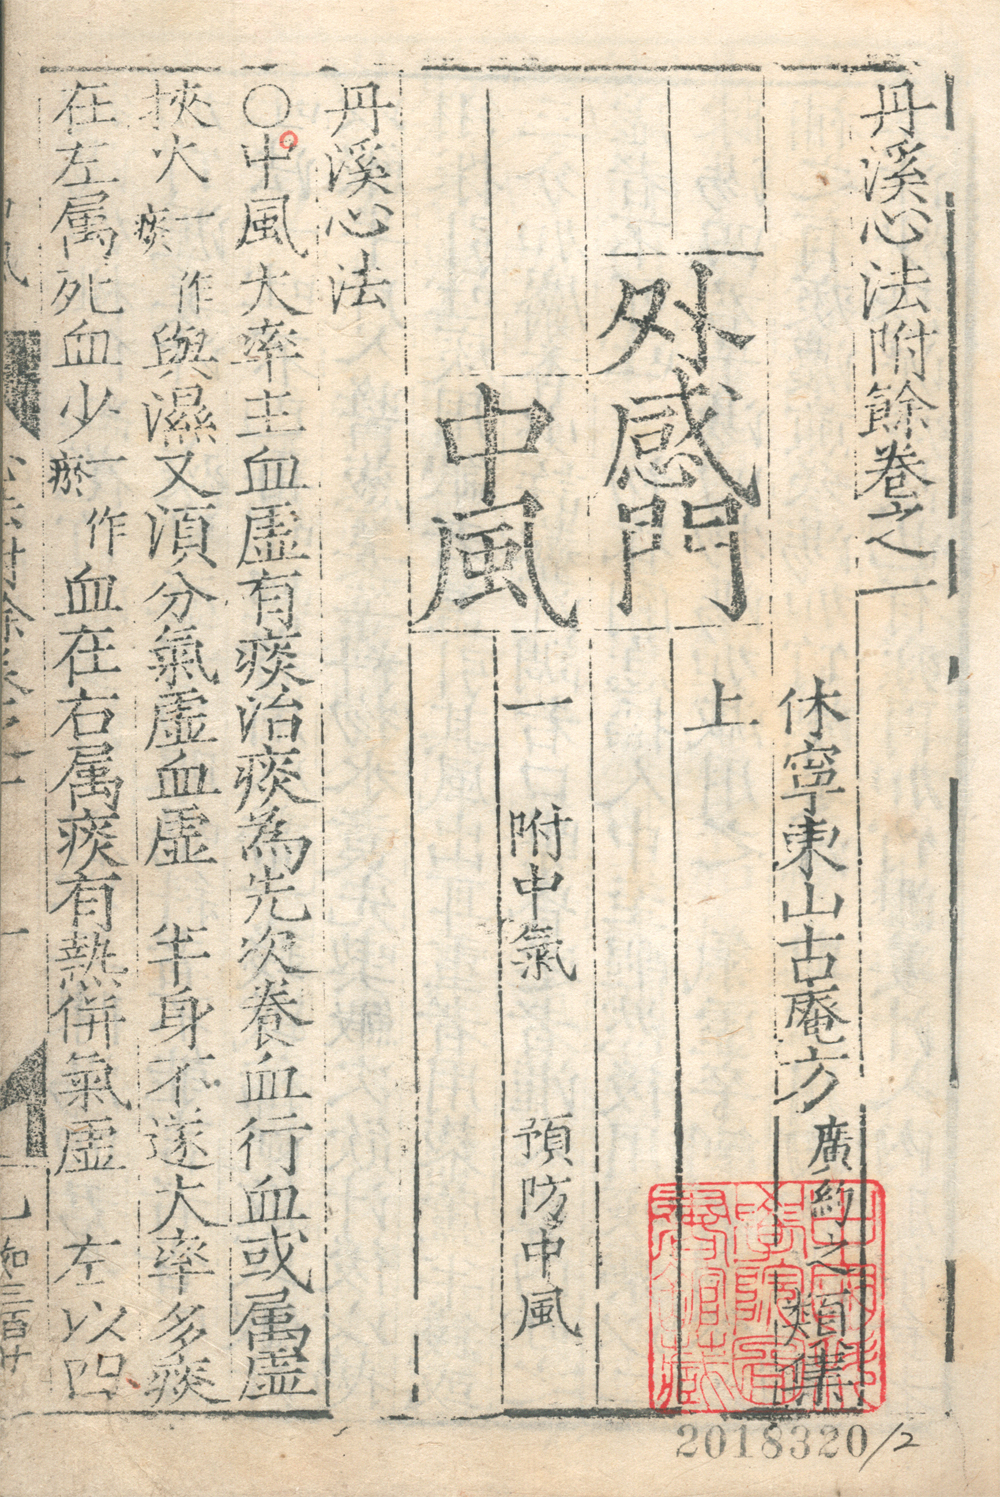 丹溪心法附餘卷之一
休寧東山古庵方廣約之類集
外感門 上
中風 一 附中氣 預防中風
丹溪心法
○中風大率主血虛有痰治痰為先次養血行血或属虛
挾火一作痰與濕又須分氣虛血虛 半身不遂大率多痰
在左属死血少一作瘀血在右属痰有熱併氣虛 左以四
2018320/2